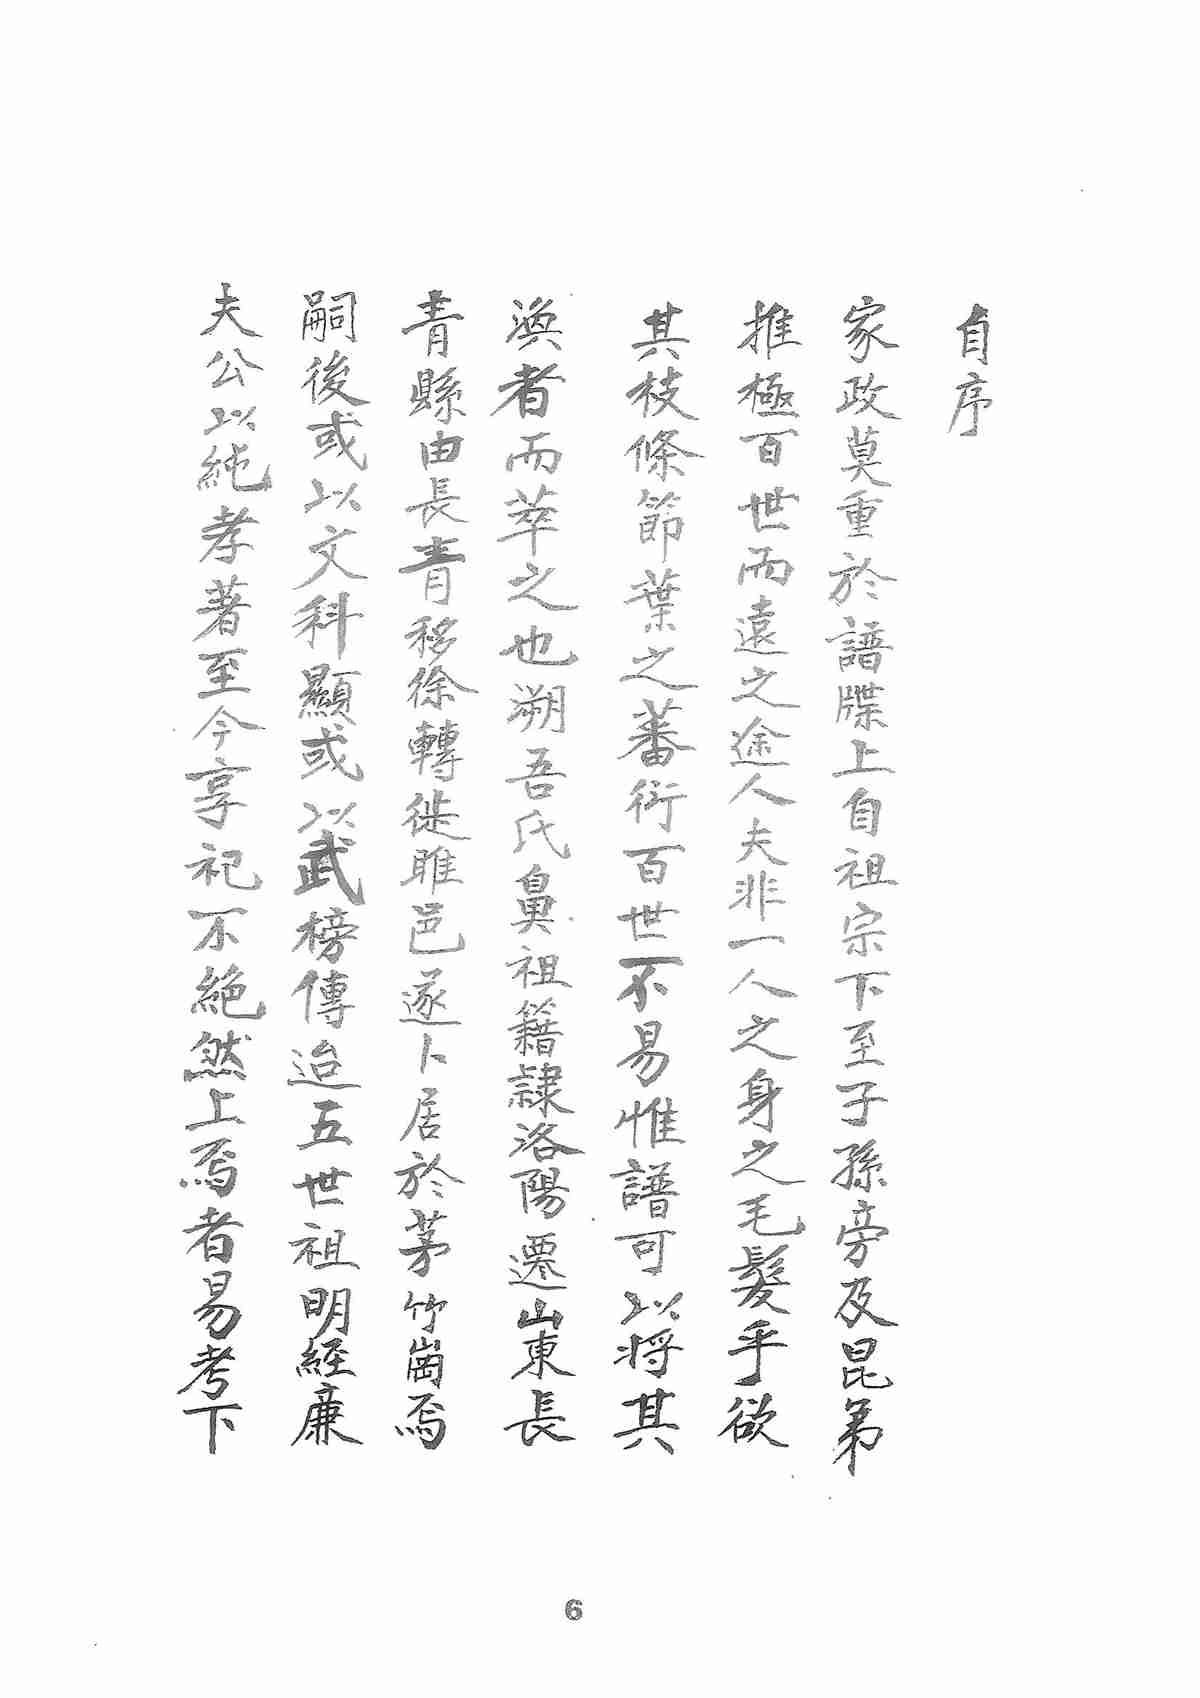 自序
家政莫重於譜牒上自祖宗下至子孫旁及昆弟
推極百世而遠之途人夫非一人之身之毛髮乎欲
其枝條節葉之蕃衍百世不易惟譜可以將其
渙者而萃之也溯吾氏鼻祖籍隸洛陽遷山東長
青縣由長青移徐轉徙睢邑遂卜居於茅竹崗焉
嗣後或以文科顯或以武榜傳迨五世祖明經廉
夫公以純孝著至今享祀不絕然上焉者易考下
6